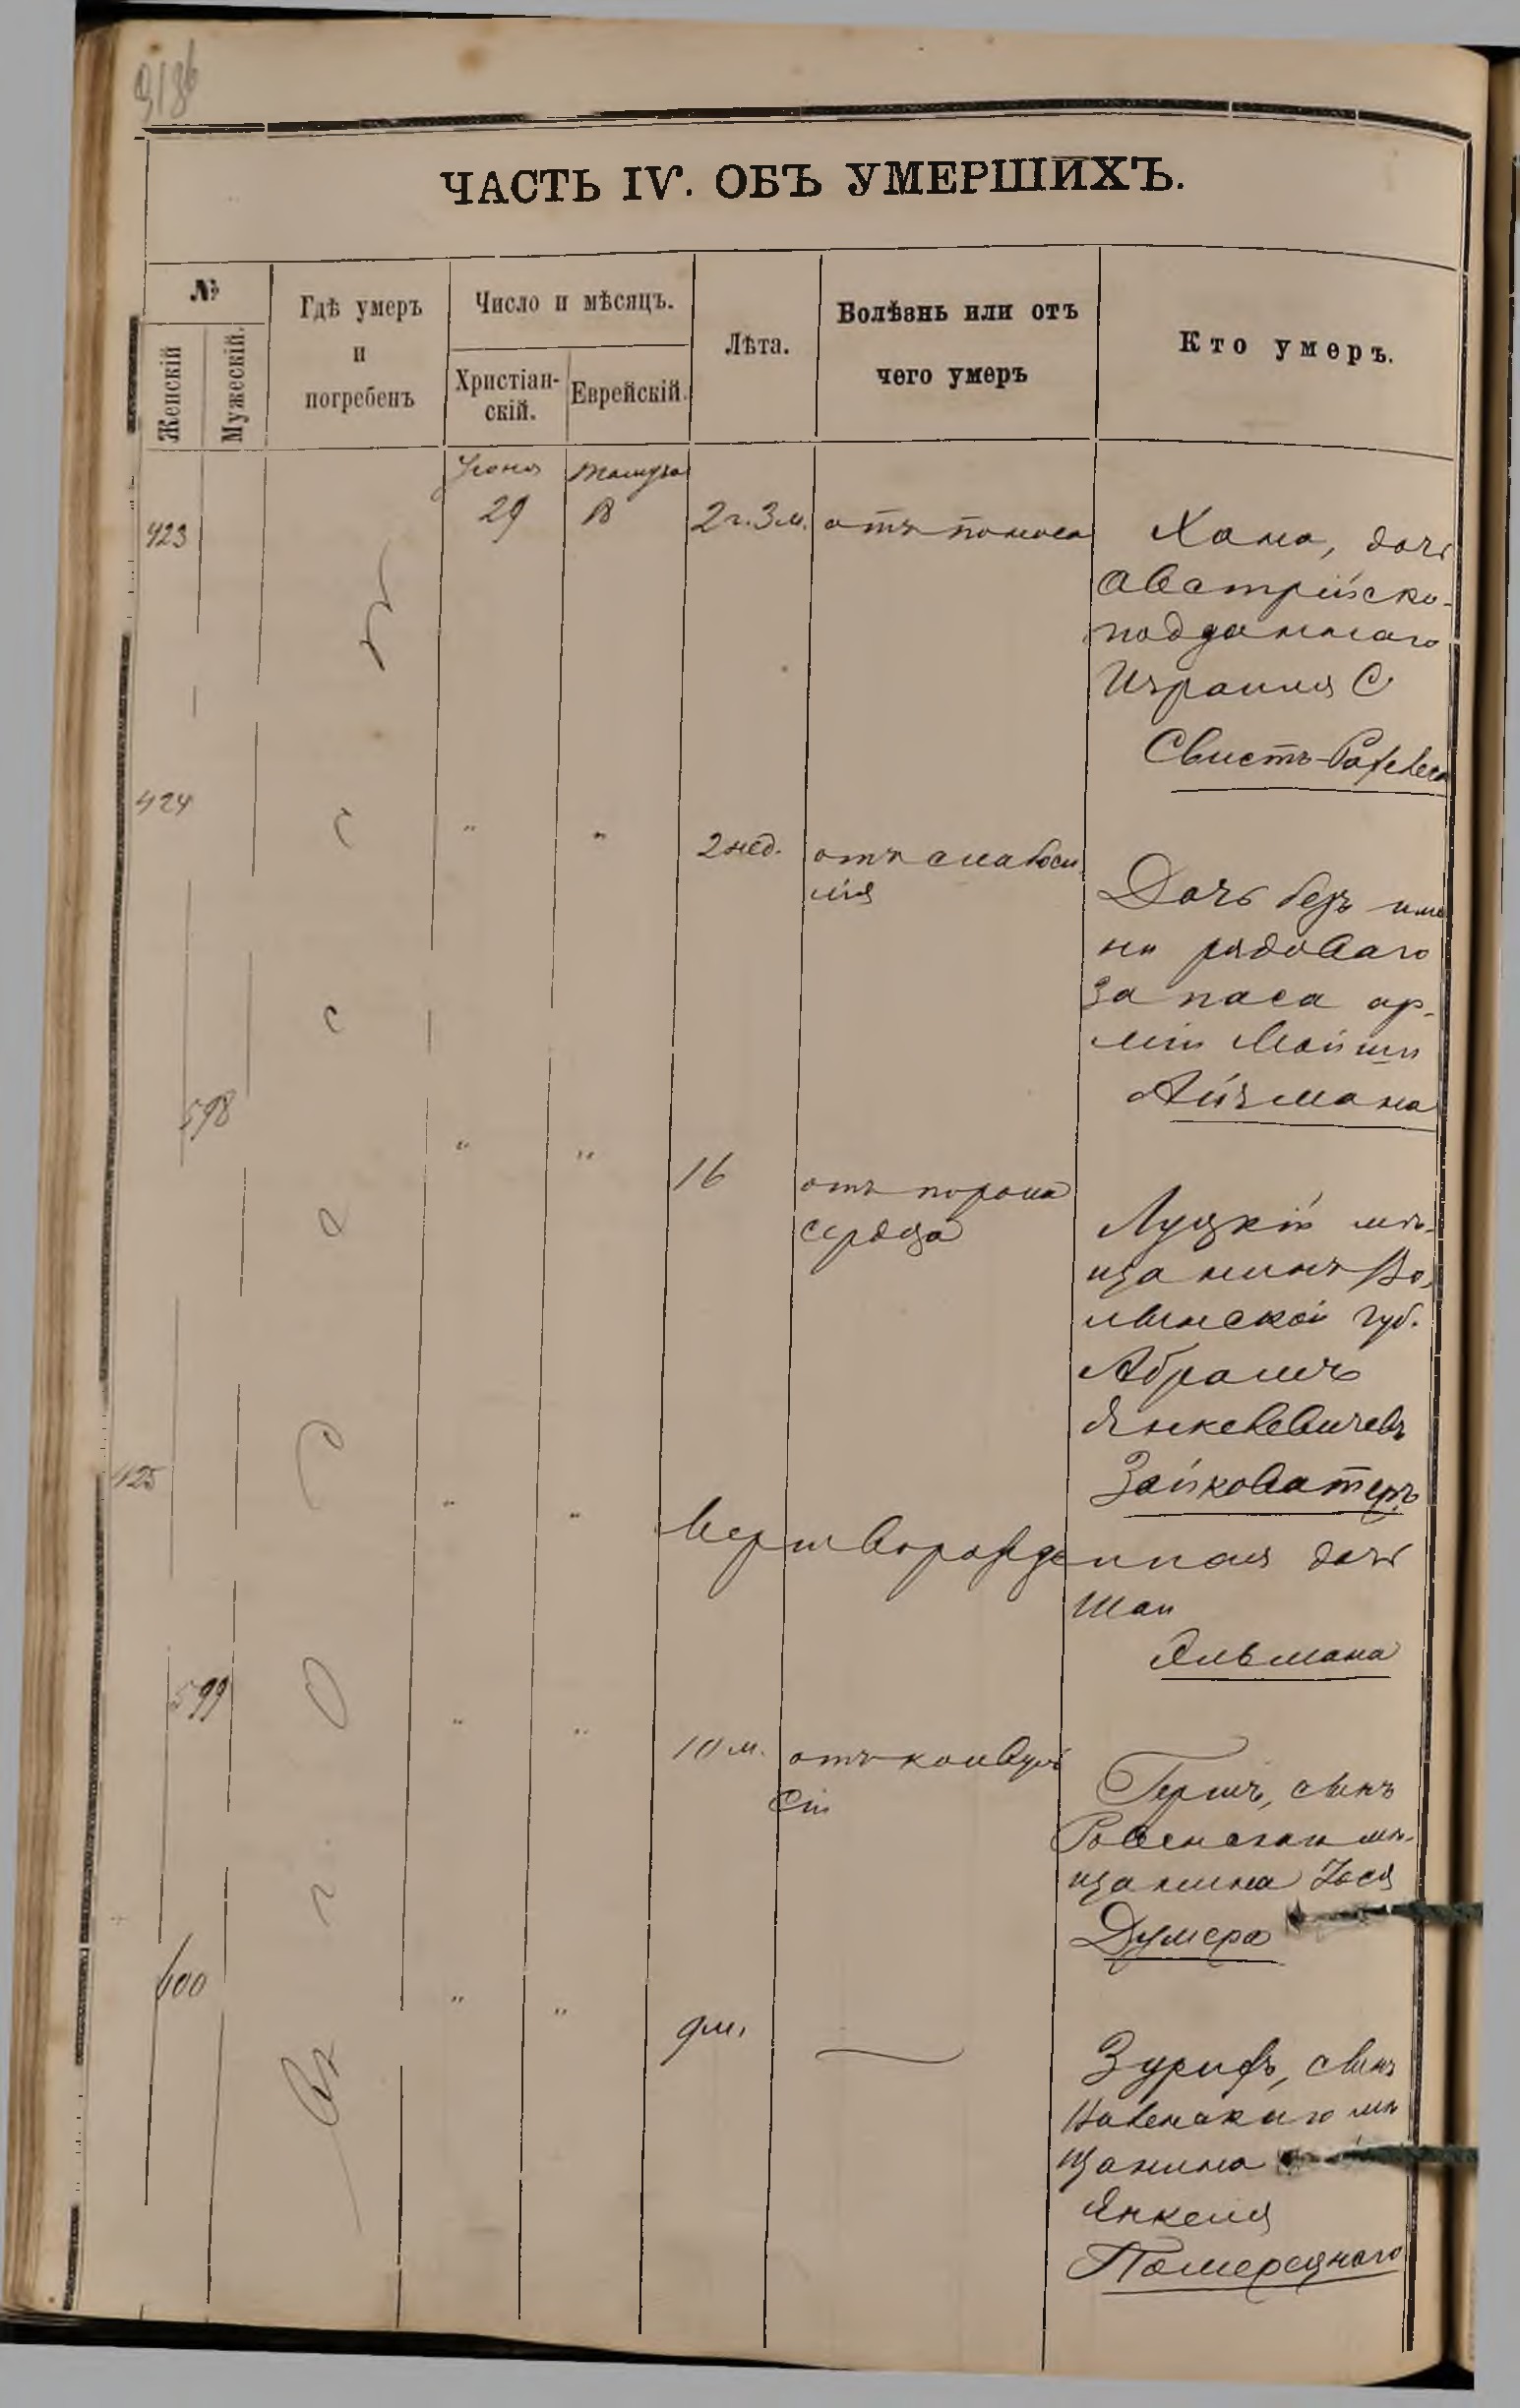 ЧАСТЬ IV. ОБЪ УМЕРШИХЪ.
№
Женскій
Мужескій.
Гдѣ умеръ
и
погребенъ
Число и мѣсяцъ.
Христіан-
скій.
Еврейскій.
Лѣта.
Болѣзнь или отъ
чего умеръ
Кто умеръ.
Въ г. Одессѣ
Іюня
Тамуза
423
29
2 г. 3 м.
отъ поноса
Хана, дочь
австрійско-
подданнаго
Израиля С
Свистъ-
424
"
"
2 нед.
отъ слабоси
лія
Дочь безъ име
ни рядоваго
запаса ар-
міи Мойши
Айзмана
598
"
"
16
отъ порока
сердца
Луцкій мѣ-
щанинъ Во-
лынской губ.
Абрамъ
Янкелевичевъ
Зайковатеръ
425
"
"
Мертворожденная дочь
Шаи
Яльмана
599
"
"
10 м.
отъ конвуль
сіи
Гершъ, сынъ
Ровенскаго мѣ-
щанина Іося
Думера
600
"
"
9 м.
—
сынъ
мѣ
щанина
Янкеля
Померецкаго